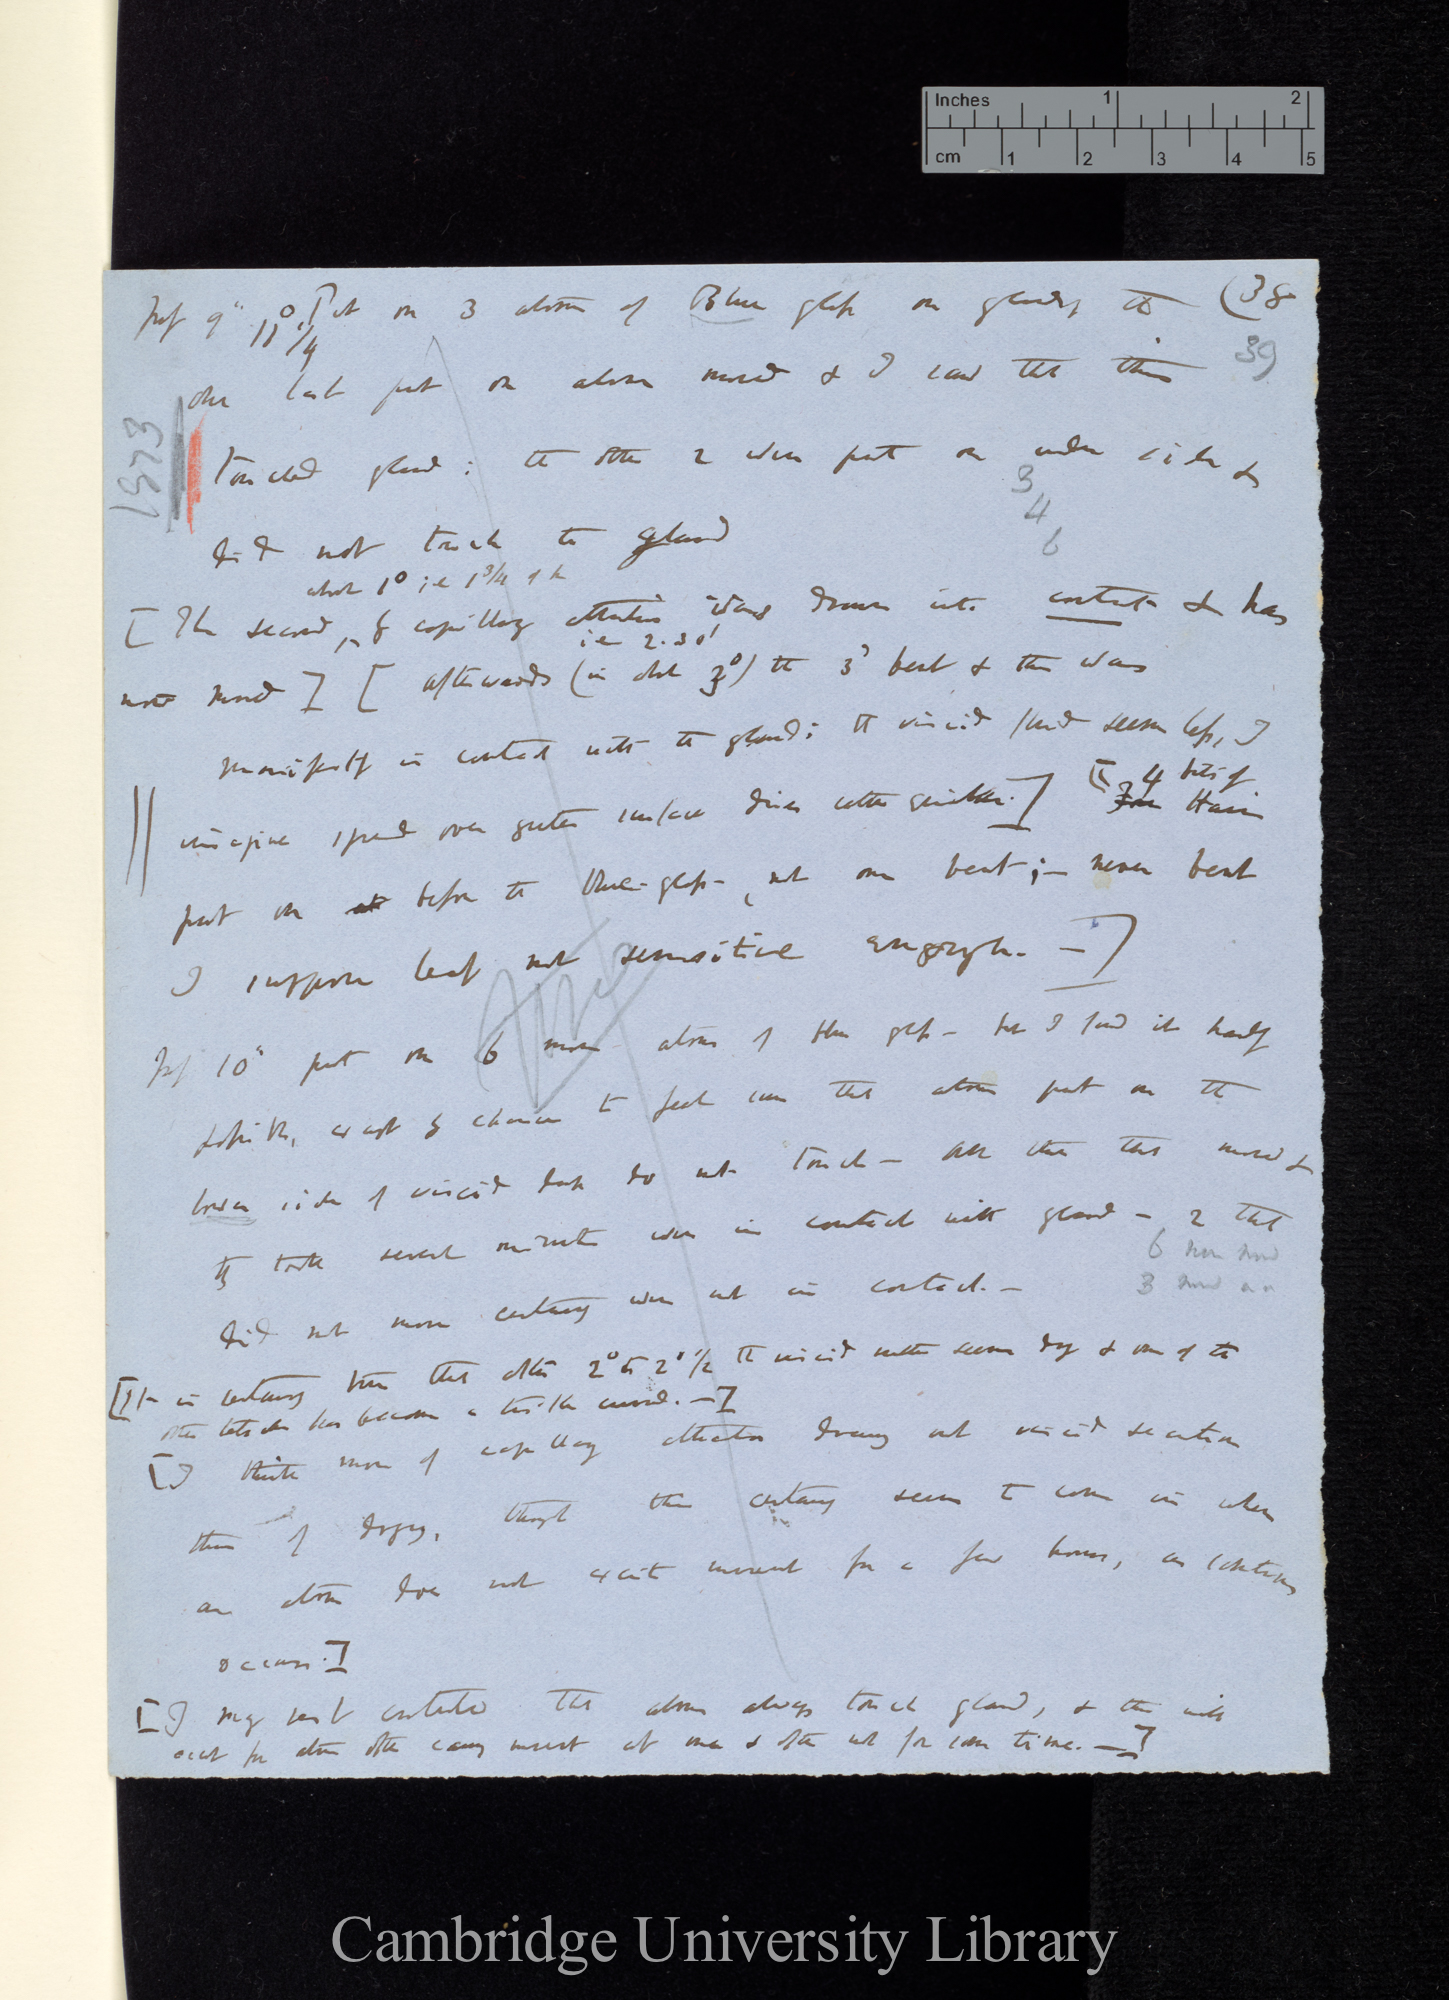 Inches 1 2
cm 1 2 3 4 5
July 9th 11° 1/4 Put on 3 atoms of Blue glass on glands, the (38
39
one last put on alone moved & I saw that this
1873
touched gland: the other 2 were put on under side &
3
4
6
did not touch the gland
about 1° ie 1 3/4 of h
[The second, by capillary attraction was drawn into contact & has
ie 2.30'
not moved] [afterwards (in about 3°) the 3d bent & this was
manifestly in contact with the gland: the viscid fluid seems less, I
imagine spread over greater surface dries rather quicker.] [4 bits of
Hair
put on before the blue-glass, not one bent; — never bent
I suppose leaf not sensitive enough. —]
July 10th put on 6 more atoms of blue glass — but I find it hardly
possible, except by chance to feel sure that atoms put on the
lower side of viscid drop do not touch — All those that moved &
they took several minutes were in contact with gland — 2 that
6
3
did not move certainly were not in contact. —
[It is certainly true that after 2° to 2° 1/2 the viscid matter seems dry & one of the
other tentacles has become a trifle curved. —]
[I think more of capillary attraction drawing out viscid secretion
than of drying, though this certainly seems to come in when
an atom does not excite movement for a few hours, as sometimes
occurs.]
[I may not conclude that atoms always touch gland, & this will
acct for atoms often causing movement at once & often not for some time. —]
Cambridge University Library